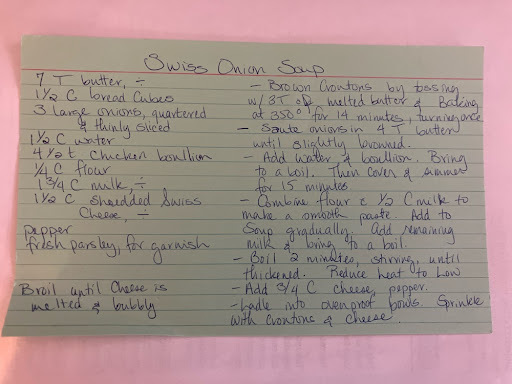 Swiss Onion Soup
7 T butter, ÷
1 1/2 C bread cubes
3 large onions, quartered
& thinly sliced
1 1/2 C water
4 1/2 t. chicken boullion
1/4 C flour
1 3/4 C milk, ÷
1 1/2 C shredded Swiss
Cheese, ÷
pepper
fresh parsley, for garnish
- Brown Croutons by tossing
w/ 3T of melted butter & Baking
at 350° for 14 minutes, turning once
- Saute onions in 4 T butter
until slightly browned.
- Add water & boullion. Bring
to a boil. Then cover & simmer
for 15 minutes
- Combine flour c̄ 1/2 C milk to
make a smooth paste. Add to
Soup gradually. Add remaining
milk & bring to a boil.
- Boil 2 minutes, stirring, until
thickened. Reduce heat to Low
- Add 3/4 C cheese, pepper.
- Ladle into ovenproof bowls. Sprinkle
with Croutons & cheese.
Broil until Cheese is
melted & bubbly